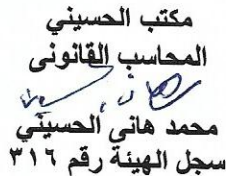 مكتب الحسيني
المحاسب القانونى
محمد هانى الحسيني
سجل الهيئة رقم ٣١٦